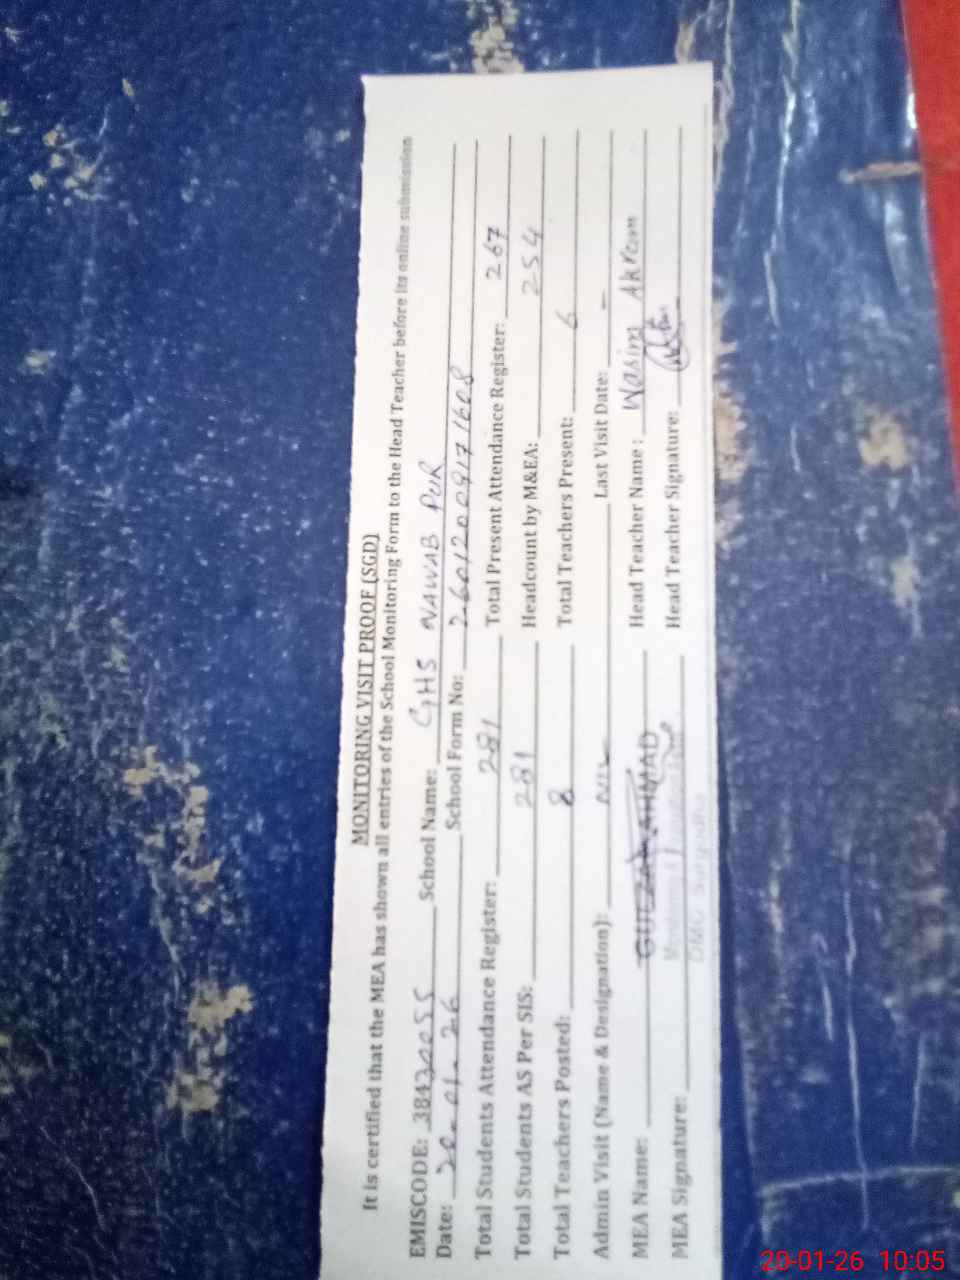 MONITORING VISIT PROOF (SGD)
It is certified that the MEA has shown all entries of the School Monitoring Form to the Head Teacher before its online submission
EMISCODE: 38420055 School Name: GHS NAWAB PUR
Date: 20-01-26 School Form No: 26012009171608
Total Students Attendance Register: 281 Total Present Attendance Register: 267
Total Students AS Per SIS: 281 Headcount by M&EA: 254
Total Teachers Posted: 8 Total Teachers Present: 6
Admin Visit (Name & Designation): NIL Last Visit Date: –
MEA Name: GULZAR AHMAD Head Teacher Name : Wasim Akram
MEA Signature: Head Teacher Signature:
20-01-26 10:05